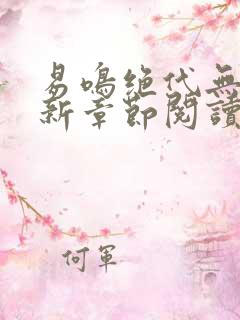 易鳴絕代無
新章節閱讀
何軍